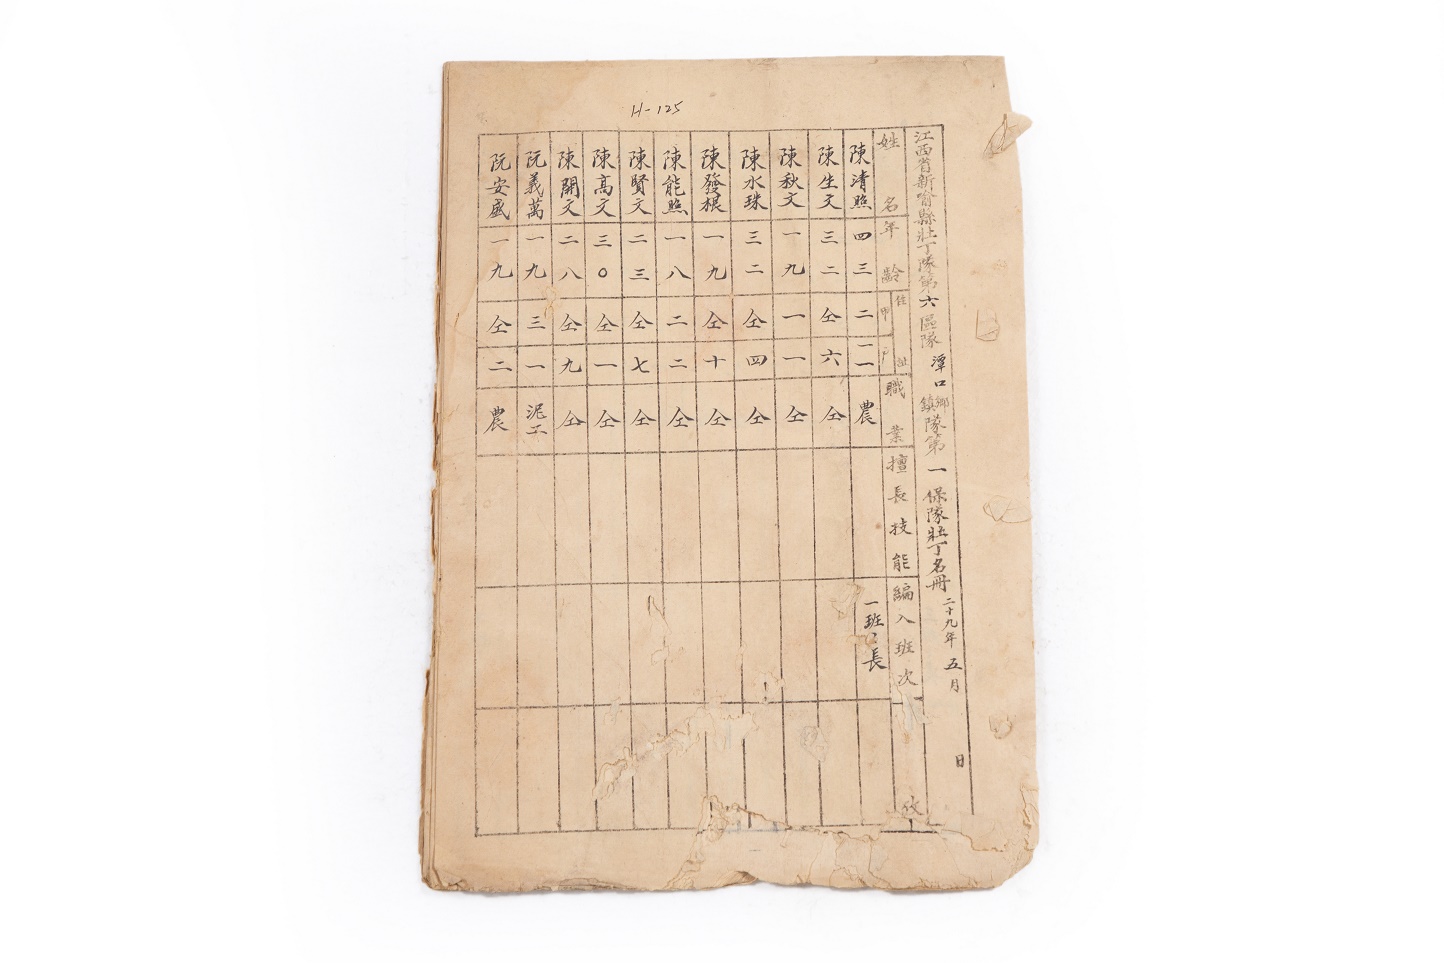 H-125
江西省新喻縣壯丁隊第六區隊潭口鄉鎮隊第一保隊壯丁名冊二十九年五月 日
姓名 年齡 住址 甲 戶 職業 擅長技能 編入班次
陳清照 四三 二 一一 農 一班長
陳生文 三二 仝 六 仝
陳秋文 一九 一 一 仝
陳水珠 三二 仝 四 仝
陳發根 一九 仝 十 仝
陳能照 一八 二 二 仝
陳賢文 二三 仝 七 仝
陳高文 三〇 仝 一 仝
陳開文 二八 仝 九 仝
阮義萬 一九 三 一 泥工
阮安盛 一九 仝 二 農